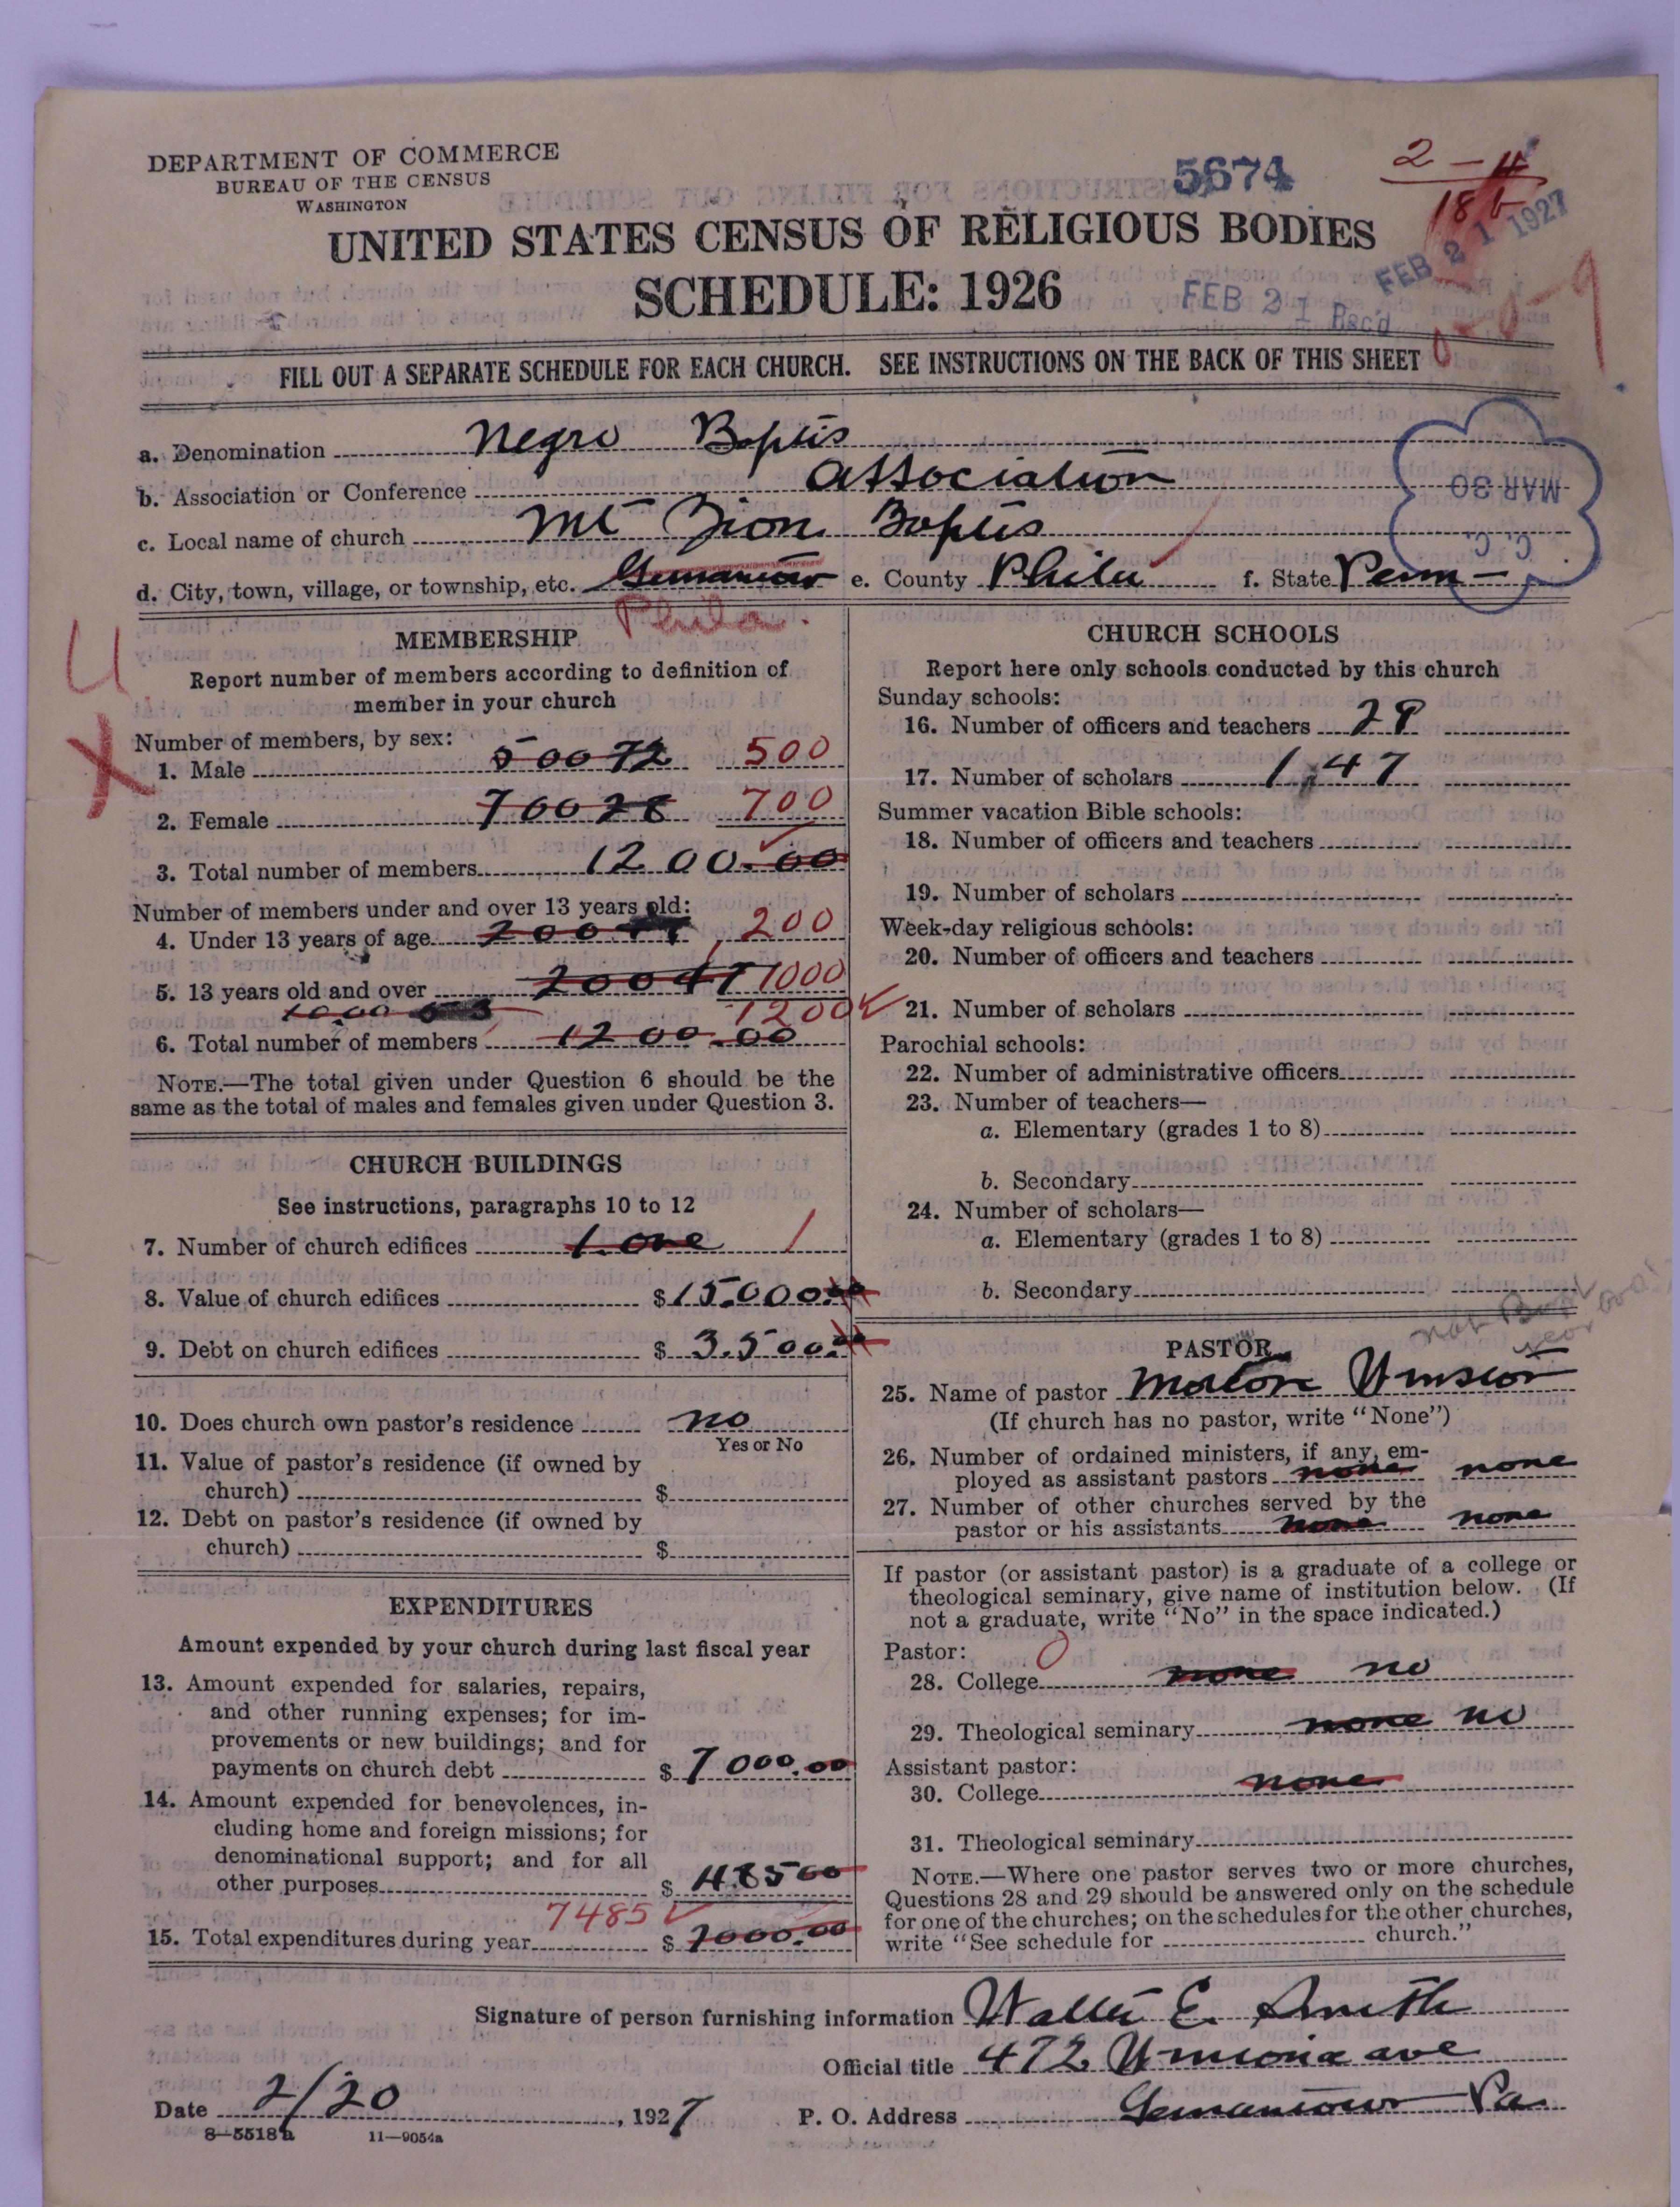 DEPARTMENT OF COMMERCE
BUREAU OF THE CENSUS
WASHINGTON
5674
2 - 4
18 b
FEB 21 1927
UNITED STATES CENSUS OF RELIGIOUS BODIES
SCHEDULE: 1926
FEB 21 Rec'd
0-0-9
FILL OUT A SEPARATE SCHEDULE FOR EACH CHURCH. SEE INSTRUCTIONS ON THE BACK OF THIS SHEET
a. Denomination Negro Baptis
b. Association or Conference Association
MAR 30
c. Local name of church Mt Zion Baptis
C. C.
d. City, town, village, or township, etc. Germantown e. County Phila f. State Penn -
Phila.
U
X
MEMBERSHIP
Report number of members according to definition of
member in your church
Number of members, by sex:
1. Male 500 72 500
2. Female 700 28 700
3. Total number of members 1200.00
Number of members under and over 13 years old:
4. Under 13 years of age 200 200
5. 13 years old and over 200 47 1000
1000 1200
6. Total number of members 1200.00
NOTE.—The total given under Question 6 should be the
same as the total of males and females given under Question 3.
CHURCH BUILDINGS
See instructions, paragraphs 10 to 12
7. Number of church edifices 1. one 1
8. Value of church edifices $ 15.000.00
9. Debt on church edifices $ 3.500.00
10. Does church own pastor's residence no
Yes or No
11. Value of pastor's residence (if owned by
church) $
12. Debt on pastor's residence (if owned by
church) $
EXPENDITURES
Amount expended by your church during last fiscal year
13. Amount expended for salaries, repairs,
and other running expenses; for im-
provements or new buildings; and for
payments on church debt $ 7000.00
14. Amount expended for benevolences, in-
cluding home and foreign missions; for
denominational support; and for all
other purposes $ 485 00
7485
15. Total expenditures during year $ 7000.00
CHURCH SCHOOLS
Report here only schools conducted by this church
Sunday schools:
16. Number of officers and teachers 28
17. Number of scholars 147
Summer vacation Bible schools:
18. Number of officers and teachers
19. Number of scholars
Week-day religious schools:
20. Number of officers and teachers
21. Number of scholars
Parochial schools:
22. Number of administrative officers
23. Number of teachers—
a. Elementary (grades 1 to 8)
b. Secondary
24. Number of scholars—
a. Elementary (grades 1 to 8)
b. Secondary
not
PASTOR
25. Name of pastor Winston
(If church has no pastor, write "None")
26. Number of ordained ministers, if any, em-
ployed as assistant pastors none none
27. Number of other churches served by the
pastor or his assistants none none
If pastor (or assistant pastor) is a graduate of a college or
theological seminary, give name of institution below. (If
not a graduate, write "No" in the space indicated.)
Pastor: 0
28. College none no
29. Theological seminary none no
Assistant pastor:
30. College none
31. Theological seminary
NOTE.—Where one pastor serves two or more churches,
Questions 28 and 29 should be answered only on the schedule
for one of the churches; on the schedules for the other churches,
write "See schedule for church."
Signature of person furnishing information Walter E. Smith
Official title 472 ave
Date 2/20, 1927 P. O. Address Germantown Pa.
8-5518 a 11—9054a